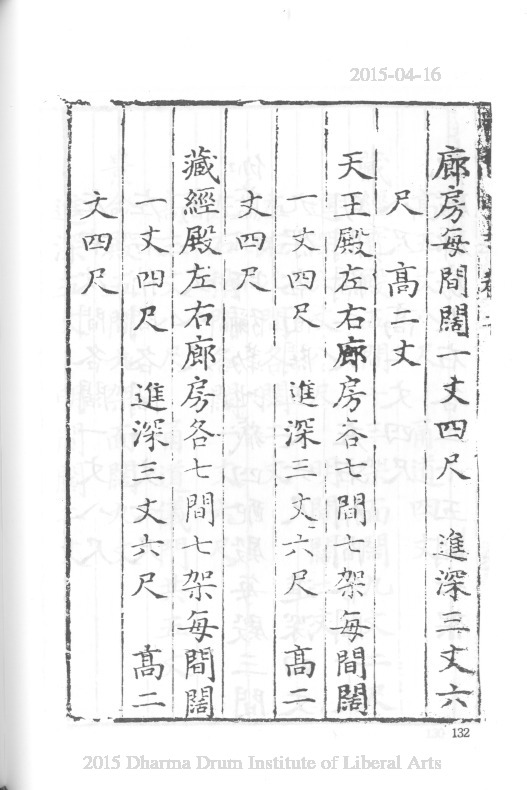 2015-04-16
廊房每間闊一丈四尺 進深三丈六
尺 高二丈
天王殿左右廊房各七間七架每間闊
一丈四尺 進深三丈六尺 高二
丈四尺
藏經殿左右廊房各七間七架每間闊
一丈四尺 進深三丈六尺 高二
丈四尺
132
2015 Dharma Drum Institute of Liberal Arts